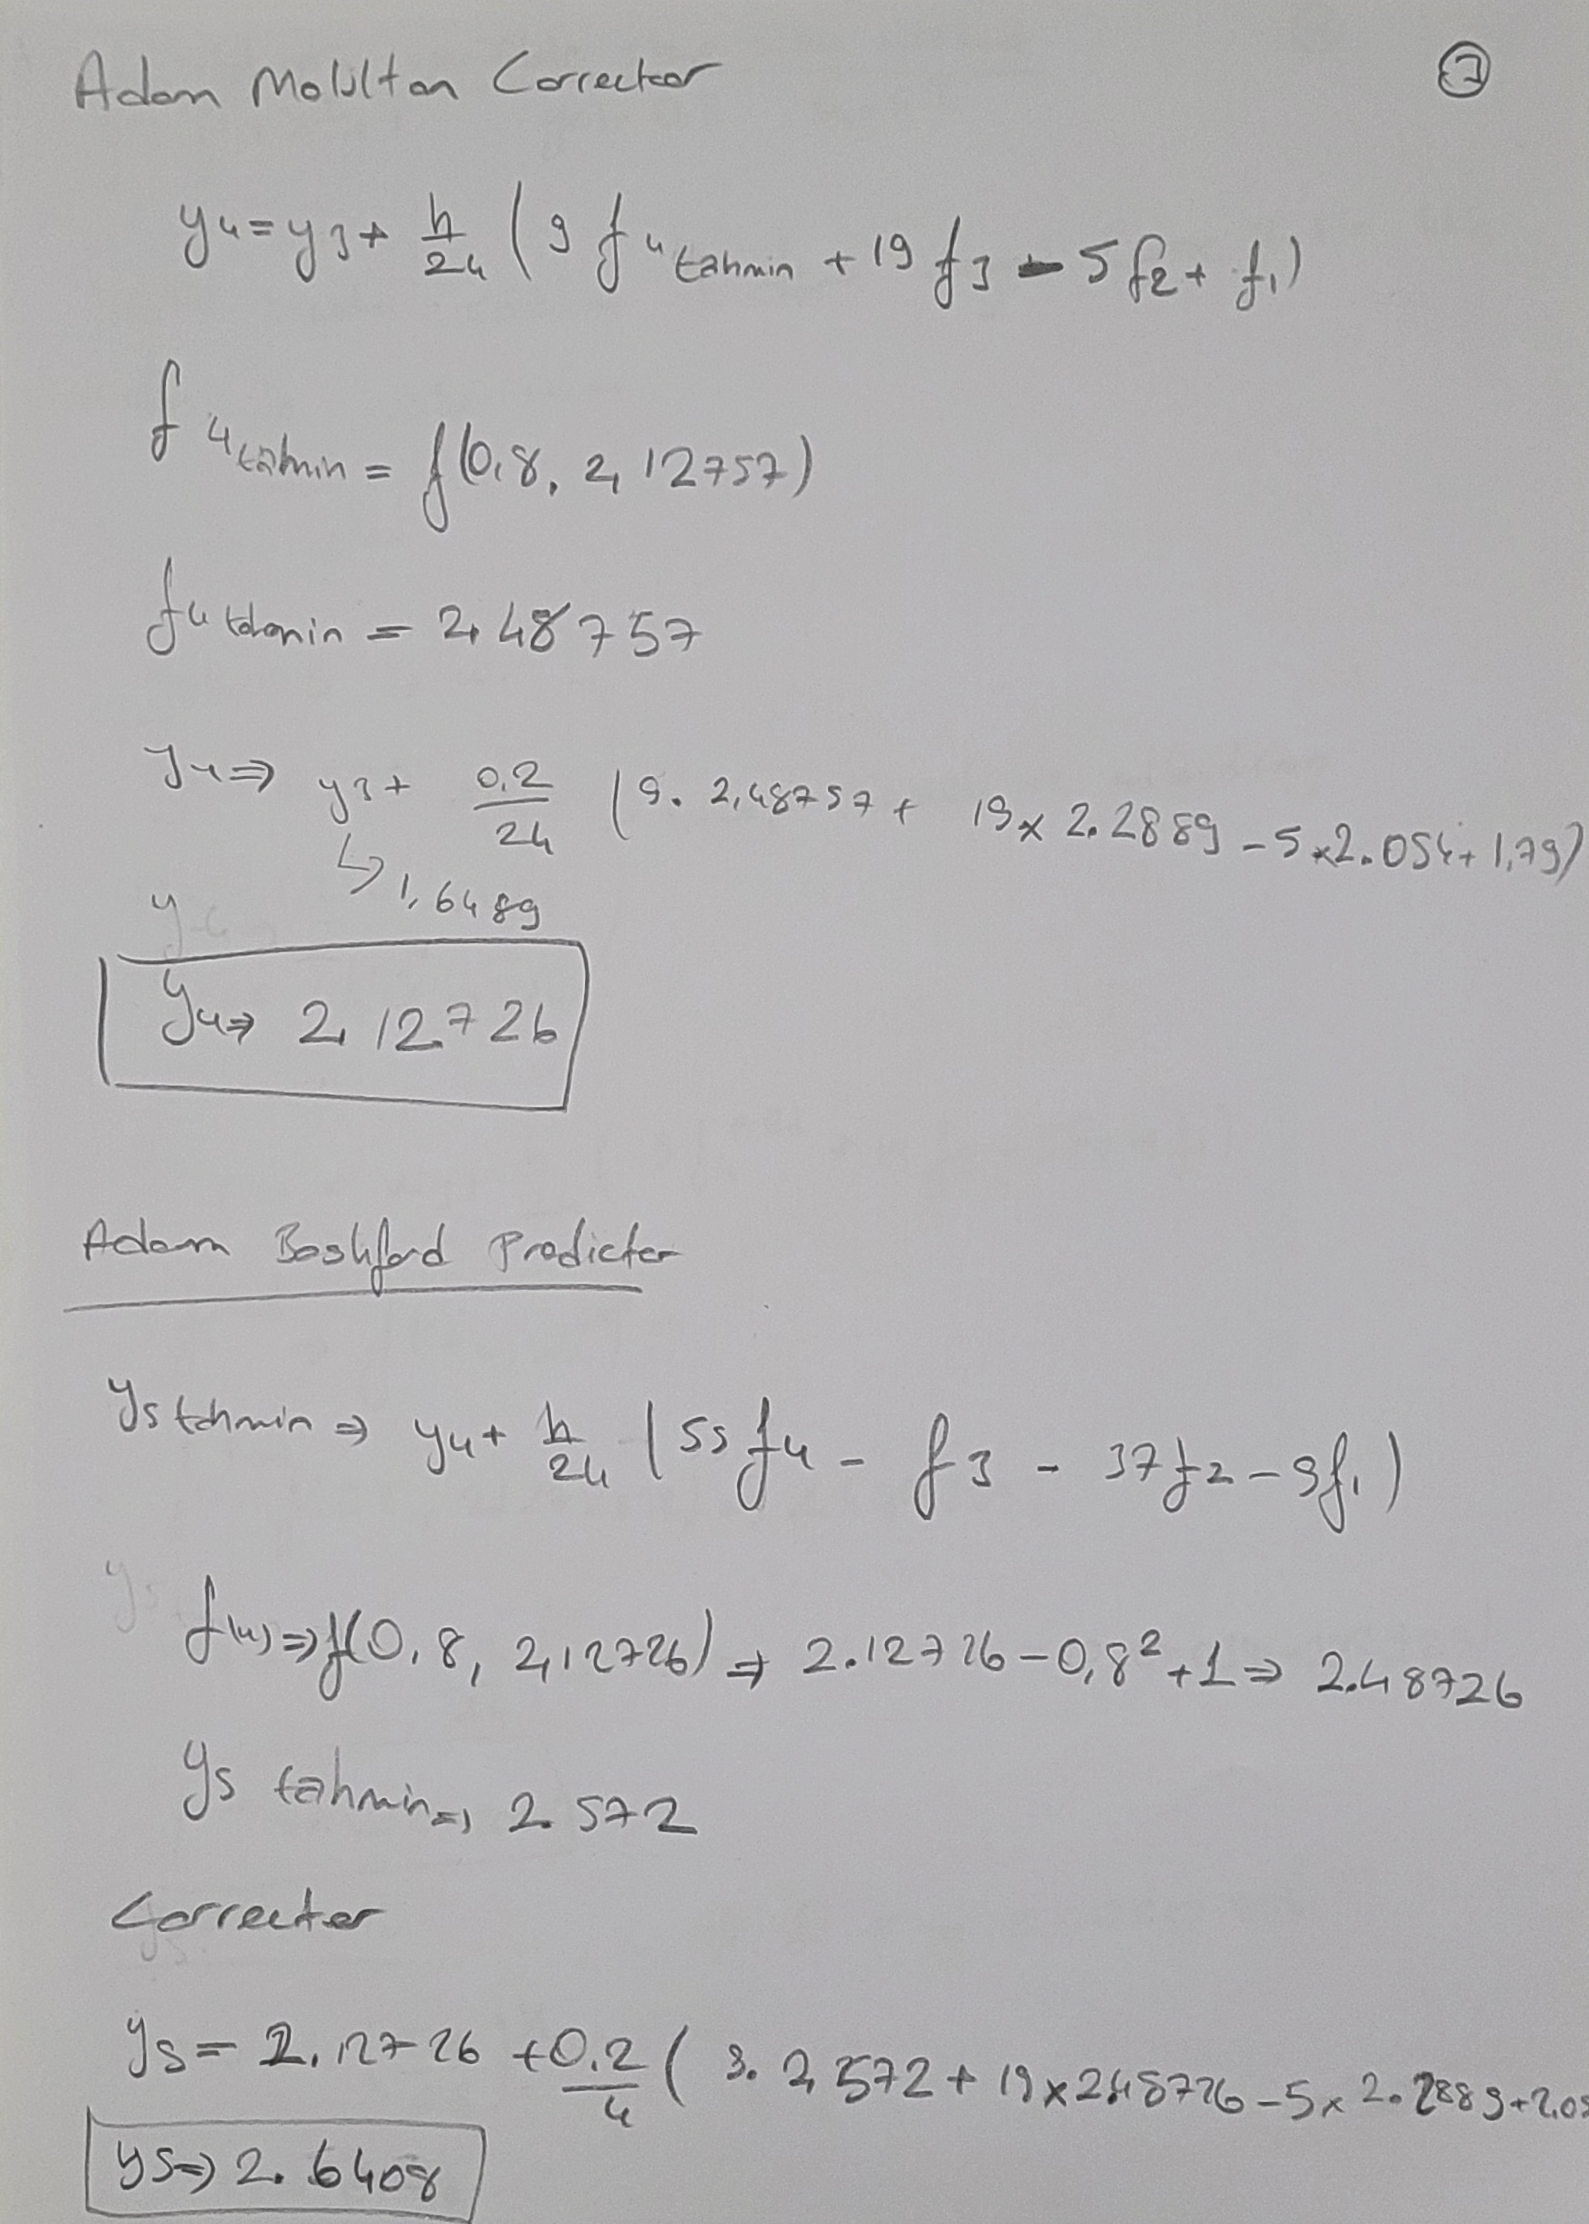 Adam Moulton Correctoor
②
y4=y3+ h/24 (9 f4 tahmin + 19 f3 - 5 f2 + f1)
f4 tahmin = f(0,8, 2,12757)
f4 tahmin = 2,48757
y4⇒ y3+ 0,2/24 (9. 2,48757+ 19x 2.2889 -5x2.054+ 1,79)
↳ 1,6489
y4⇒ 2,12726
Adam Bashford Predicter
y5 tahmin ⇒ y4+ h/24 (55 f4 - f3 - 37f2 - 9f1)
f(4)⇒f(0,8, 2,12726) ⇒ 2.12726-0,8²+1⇒ 2.48726
y5 tahmin⇒ 2.572
Correcter
y5= 2,12726 +0.2/4 (9. 2,572+ 19x2.48726-5x 2.2889+2,05
y5⇒ 2.6408